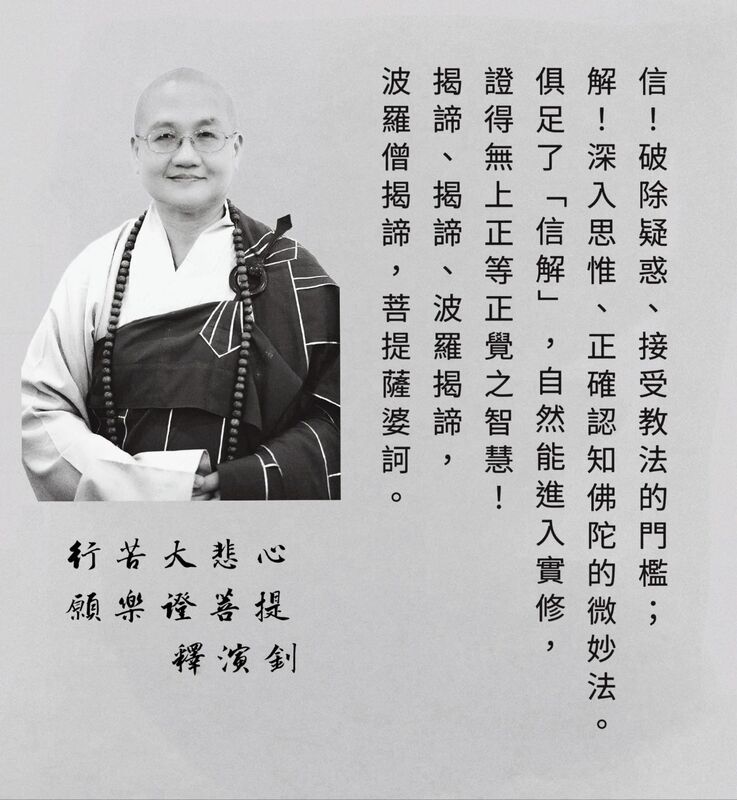 信！破除疑惑、接受教法的門檻；
解！深入思惟、正確認知佛陀的微妙法。
俱足了「信解」，自然能進入實修，
證得無上正等正覺之智慧！
揭諦、揭諦、波羅揭諦，
波羅僧揭諦，菩提薩婆訶。
行苦大悲心
願樂證菩提
釋演釗